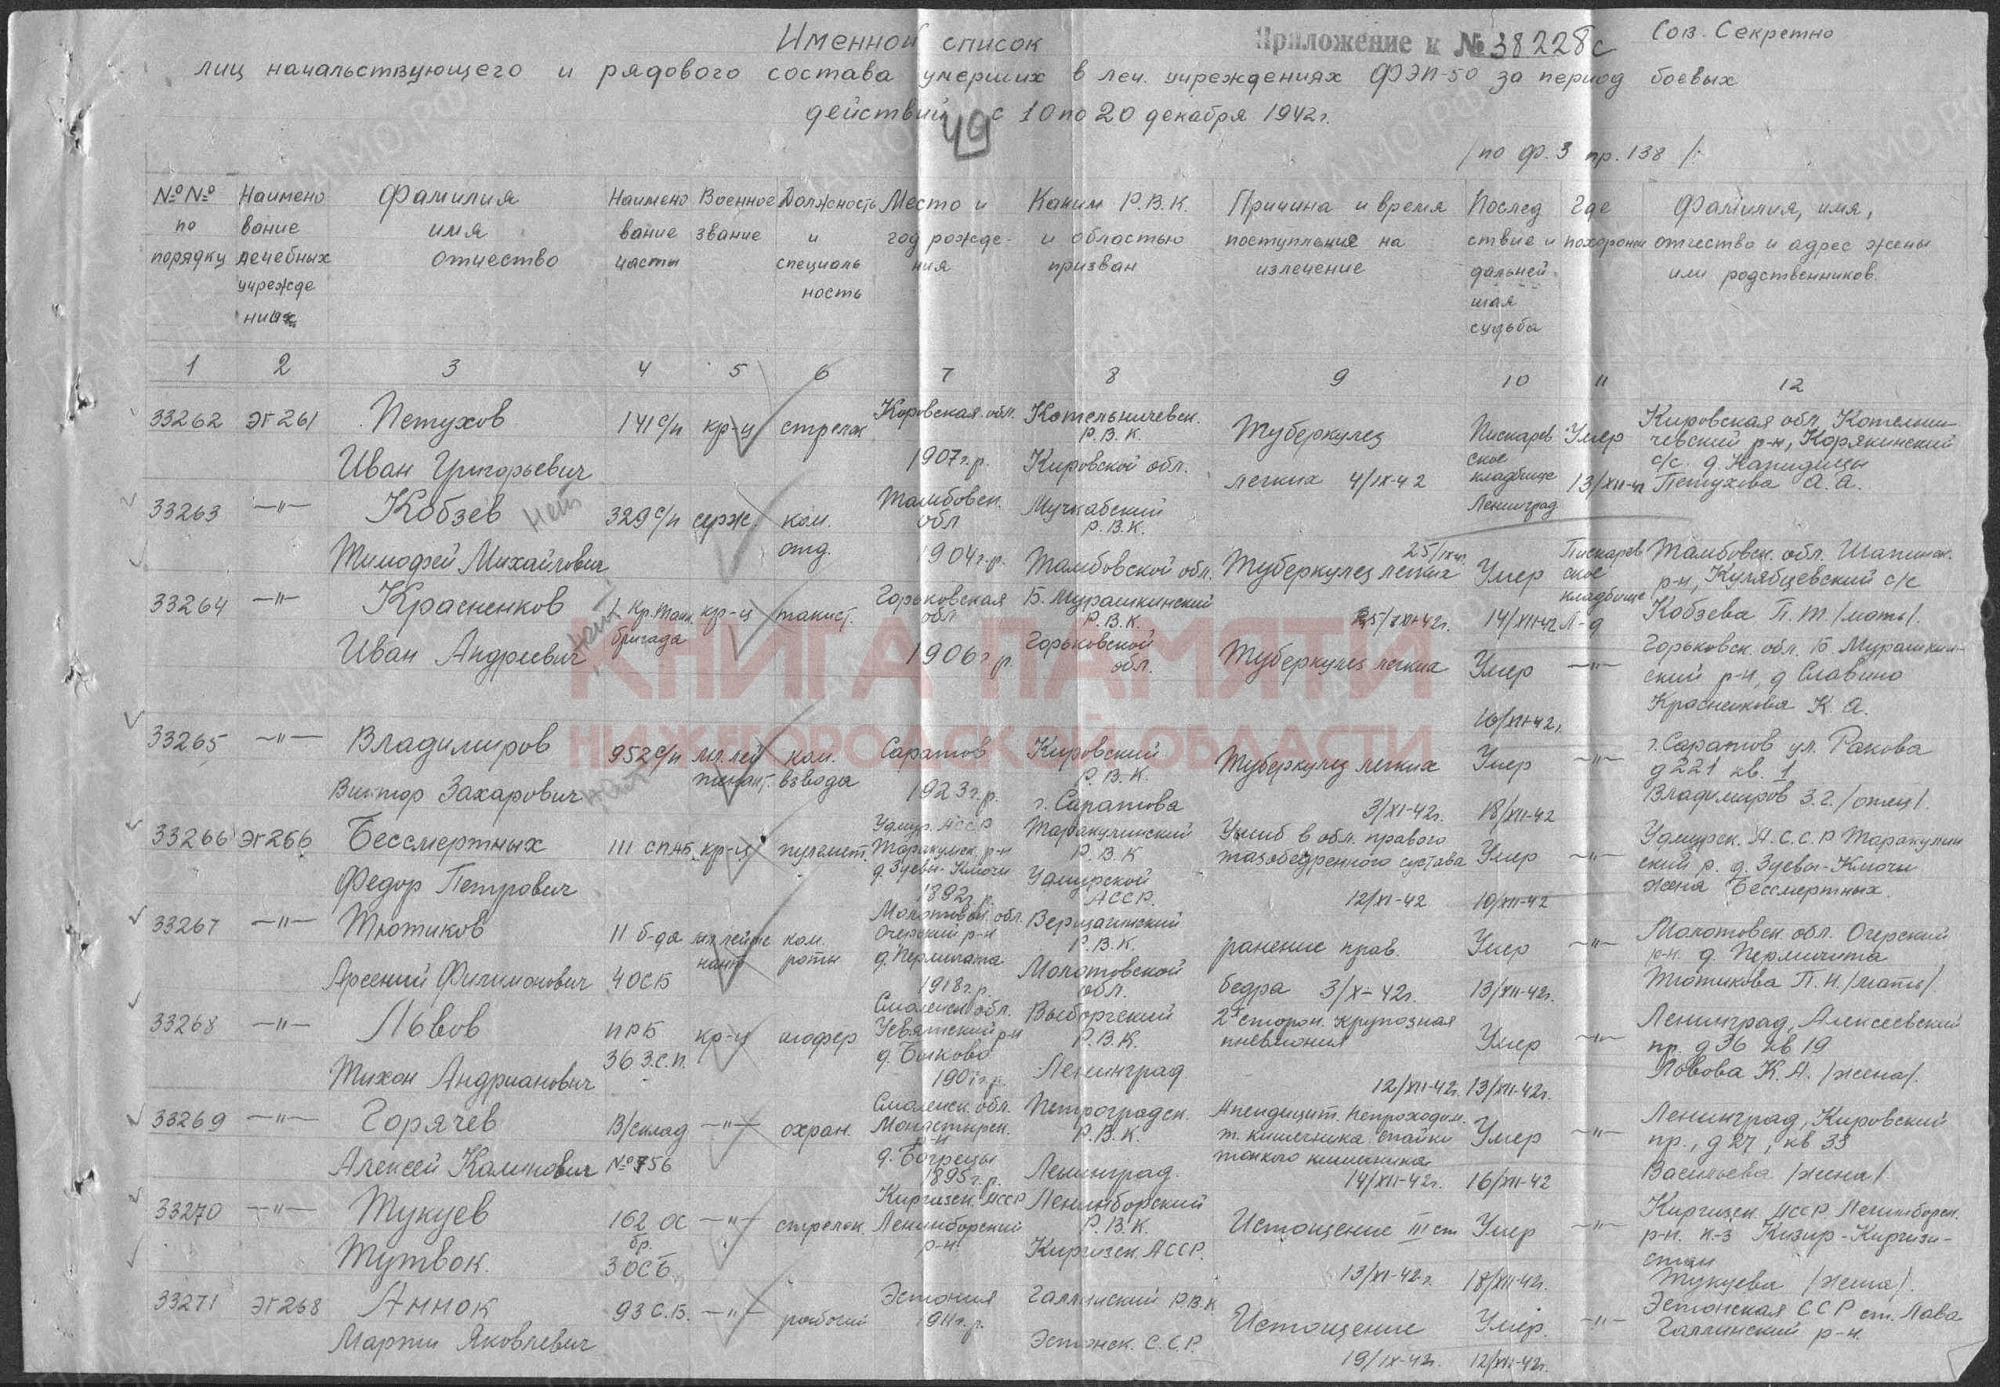 Именной список
Приложение к № 38228с
Сов. Секретно
лиц начальствующего и рядового состава умерших в леч. учреждениях ФЭП-50 за период боевых
действий с 10 по 20 декабря 1942 г.
49
/по ф. 3 пр. 138/
№№ по порядку
Наименование лечебных учреждениях
Фамилия имя отчество
Наименование части
Военное звание
Должность и специальность
Место и год рождения
Каким Р.В.К. и областью призван
Причина и время поступления на излечение
Последствие и дальнейшая судьба
Где похоронен
Фамилия, имя, отчество и адрес жены или родственников.
1 2 3 4 5 6 7 8 9 10 11 12
33262 ЭГ 261 Петухов 141 с/п кр-ц стрелок Кировская обл. Котельничевск. Р.В.К. Туберкулез Пискаревское кладбище Ленинград Умер Кировская обл. Котельничевский р-н, Корякинский с/с. д.
Иван Григорьевич 1907 г.р. Кировской обл. легких 4/IX-42 13/XII-42 Петухова А.А.
33263 —"— Кобзев нет 329 с/п серж. ком. отд. Тамбовск. обл. Мучкабский Р.В.К.
Тимофей Михайлович 1904 г.р. Тамбовской обл. Туберкулез легких Умер Пискаревское кладбище Л-д Тамбовск. обл. р-н, Кулябцевский с/с
14/XII-42 Кобзева П.Т. /мать/.
33264 —"— Красненков нет 1 Кр. Танк. бригада кр-ц танкист. Горьковская обл. Б. Мурашкинский Р.В.К.
Иван Андреевич 1906 г.р. Горьковской обл. Туберкулез легких Умер —"— Горьковск. обл. Б. Мурашкинский р-н, д Славино
16/XII-42г. Красненкова К.А.
КНИГА ПАМЯТИ
НИЖЕГОРОДСКОЙ ОБЛАСТИ
33265 —"— Владимиров нет 952 с/п мл. лейтенант. ком. взвода Саратов Кировский Р.В.К. Туберкулез легких Умер —"— г. Саратов ул. Ракова д 221 кв. 1
Виктор Захарович 1923 г.р. г. Саратова 3/XI-42г. 18/XII-42 Владимиров З.Г. /отец/.
33266 ЭГ 266 Бессмертных кр-ц пулемет. Удмур. АССР р-н д. Зуевы-Ключи Р.В.К. Ушиб в обл. правого тазобедренного сустава Умер —"— Удмурск. А.С.С.Р д. Зуевы-Ключи
Федор Петрович 1892 г.р. Удмурской АССР. 12/XI-42 10/XII-42 жена Бессмертных.
33267 —"— Тютиков 11 б-да мл лейтенант ком. роты Молотовск. обл. Очерский р-н Верщагинский Р.В.К. ранение прав. Умер —"— Молотовск. обл. Очерский р-н.
Арсений Филимонович 4 ОСБ 1918 г.р. Молотовской обл. бедра 3/X-42г. 13/XII-42г. Тютикова П.Н. /мать/.
33268 —"— Львов ПРБ 36 З.С.П. кр-ц шофер Смоленск. обл. Усвятский р-н д. Быково Выборгский Р.В.К. 2х сторон. крупозная пневмония Умер —"— Ленинград, Алексеевский пр. д 36 кв 19
Тихон Андрианович Ленинград. 12/XII-42г. 13/XII-42г. Львова К.А. /жена/.
33269 —"— Горячев В/склад —"— охран. Смоленск. обл. Монастырск. р-н Петроградск. Р.В.К. Апендицит. Непроходим. кишечника спайки тонкого кишечника Умер —"— Ленинград, Кировский пр., д 27, кв 33
Алексей Калинович № 756 1895 г.р. Ленинград. 14/XII-42г. 16/XII-42 Васильева /жена/.
33270 —"— Тукуев 162 ос бр. —"— стрелок Киргизск. АССР Ленинборский р-н Ленинборский Р.В.К. Истощение III ст Умер —"— Киргизск. АССР Ленинборск. р-н.
Тутвок. 3 ОСБ. Киргизск. АССР. 13/XI-42г. 18/XII-42г. Тукуева /жена/.
33271 ЭГ 268 Аннок 93 С.Б. —"— рабочий Эстония 1911 г.р. Галлинский Р.В.К Истощение Умер. —"— Эстонская ССР ст. Лава Галлинский р-н.
Мартин Яковлевич Эстонск. С.С.Р. 19/IX-42г. 12/XII-42г.